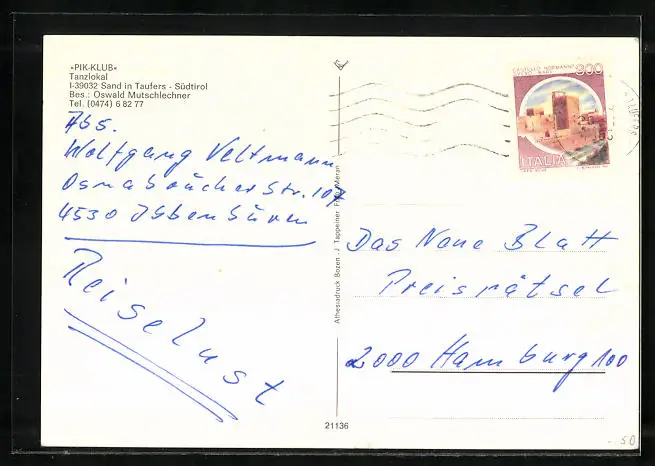 »PIK-KLUB«
Tanzlokal
I-39032 Sand in Taufers - Südtirol
Bes.: Oswald Mutschlechner
Tel. (0474) 6 82 77
Abs.
Wolfgang Veltmann
Osnabrücher Str. 107
4530 Ibbenbüren
Reiselust
Athesiadruck Bozen - J. Tappeiner Foto Meran
21136
300
ITALIA
Das Neue Blatt
Preisrätsel
2000 Hamburg 100
-.50